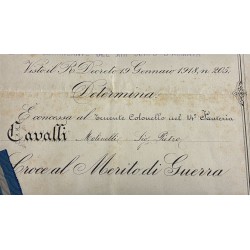 Visto il R. Decreto 19 Gennaio 1918, n 205.
Determina
È concessa al Tenente Colonello nel 14° Fanteria
Cavalli Molinelli Sig. Pietro
Croce al Merito di Guerra